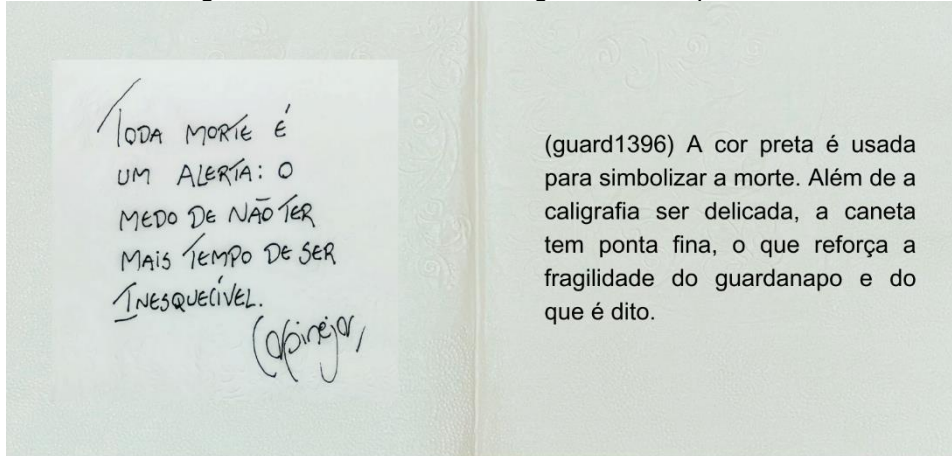 TODA MORTE É
UM ALERTA: O
MEDO DE NÃO TER
MAIS TEMPO DE SER
INESQUECÍVEL.
Carpinejar
(guard1396) A cor preta é usada
para simbolizar a morte. Além de a
caligrafia ser delicada, a caneta
tem ponta fina, o que reforça a
fragilidade do guardanapo e do
que é dito.